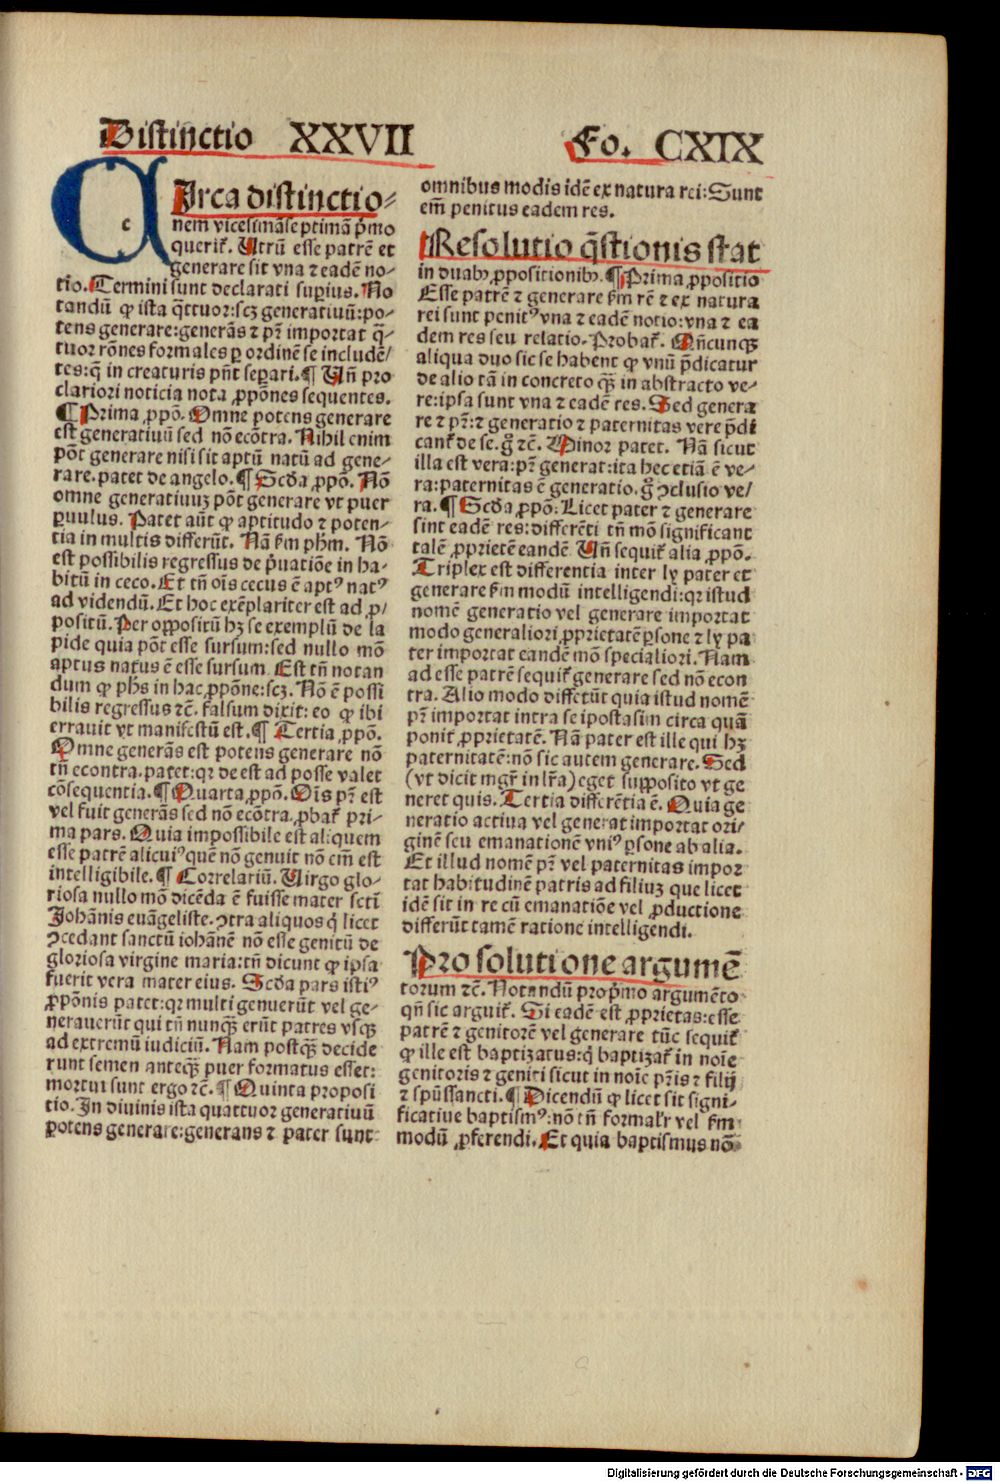 Distinctio XXVII Fo. CXIX
CIrca distinctio-
nem vicesimãseptimã p̃mo
querit̃. Utrũ esse patrẽ et
generare sit vna ⁊ eadẽ no-
tio. Termini sunt declarati superius. No
tandũ ꝙ ista q̃ttuor: scꝫ generatiuũ: po-
tens generare: generãs ⁊ pr̃ importat q̃-
tuor rõnes formales ꝑ ordinẽ se includẽ/
tes: q̃ in creaturis pn̄t seꝑari. ¶ Un̄ pro
clariori noticia nota ꝓpõnes sequentes.
¶ Prima ꝓpõ. Omne potens generare
est generatiuũ sed nõ ecõtra. Nihil enim
põt generare nisi sit aptũ natũ ad gene-
rare. patet de angelo. ¶ Scd̃a ꝓpõ. Nõ
omne generatiuuꝫ põt generare vt puer
ꝑuulus. Patet aũt ꝙ aptitudo ⁊ poten-
tia in multis differũt. Nã ẜm ph̃m. Nõ
est possibilis regressus de p̃uatiõe in ha-
bitũ in ceco. Et tñ oĩs cecus ẽ aptꝰ natꝰ
ad videndũ. Et hoc exẽplariter est ad ꝓ/
positũ. Per oppositũ hꝫ se exemplũ de la
pide quia põt esse sursum: sed nullo mõ
aptus natus ẽ esse sursum. Est tñ notan
dum ꝙ ph̃s in hac ꝓpõne: scꝫ. Nõ ẽ possi
bilis regressus ⁊c̃. falsum dixit: eo ꝙ ibi
errauit vt manifestũ est. ¶ Tertia ꝓpõ.
Omne generãs est potens generare nõ
tñ econtra. patet: qr de est ad posse valet
cõsequentia. ¶ Quarta ꝓpõ. Oĩs pr̃ est
vel fuit generãs sed nõ ecõtra. ꝓbat̃ pri-
ma pars. Quia impossibile est aliquem
esse patrẽ alicuiꝰ quẽ nõ genuit nõ em̃ est
intelligibile. ¶ Correlariũ. Uirgo glo-
riosa nullo mõ dicẽda ẽ fuisse mater scti
Johãnis euãgeliste. ↄtra aliquos q̃ licet
ↄcedant sanctũ iohãnẽ nõ esse genitũ de
gloriosa virgine maria: tñ dicunt ꝙ ipsa
fuerit vera mater eius. Scd̃a pars istiꝰ
ꝓpõnis patet: qr multi genuerũt vel ge-
nerauerũt qui tñ nunq̃ꝫ erũt patres vsqꝫ
ad extremũ iudiciũ. Nam postq̃ꝫ decide
runt semen anteq̃ꝫ puer formatus esset:
mortui sunt ergo ⁊c̃. ¶ Quinta proposi
tio. In diuinis ista quattuor generatiuũ
potens generare: generans ⁊ pater sunt
omnibus modis idẽ ex natura rei: Sunt
em̃ penitus eadem res.
Resolutio q̃stionis stat
in duabꝰ ꝓpositionibꝰ. ¶ Prima ꝓpositio
Esse patrẽ ⁊ generare ẜm rẽ ⁊ ex natura
rei sunt penitꝰ vna ⁊ eadẽ notio: vna ⁊ ea
dem res seu relatio. Probat̃. Qñcunqꝫ
aliqua duo sic se habent ꝙ vnũ p̃dicatur
de alio tã in concreto q̃ꝫ in abstracto ve-
re: ipsa sunt vna ⁊ eadẽ res. Sed genera
re ⁊ pr̃: ⁊ generatio ⁊ paternitas vere p̃di
cant̃ de se. g̃ ⁊c̃. Minor patet. Nã sicut
illa est vera: pr̃ generat: ita hec etiã ẽ ve-
ra: paternitas ẽ generatio. g̃ ↄclusio ve/
ra. ¶ Scd̃a ꝓpõ: Licet pater ⁊ generare
sint eadẽ res: differẽti tñ mõ significant
talẽ ꝓprietẽ eandẽ Un̄ sequit̃ alia ꝓpõ.
Triplex est differentia inter ly pater et
generare ẜm modũ intelligendi: qr istud
nomẽ generatio vel generare importat
modo generaliori ꝓprietatẽ ꝑsone ⁊ ly pa
ter importat eandẽ mõ specialiori. Nam
ad esse patrẽ sequit̃ generare sed nõ econ
tra. Alio modo differũt quia istud nomẽ
pr̃ importat intra se ipostasim circa quã
ponit ꝓprietatẽ. Nã pater est ille qui hꝫ
paternitatẽ: nõ sic autem generare. Sed
(vt dicit mgr̃ in lr̃a) eget supposito vt ge
neret quis. Tertia differẽtia ẽ. Quia ge
neratio actiua vel generat importat ori/
ginẽ seu emanationẽ vniꝰ ꝑsone ab alia.
Et illud nomẽ pr̃ vel paternitas impor
tat habitudinẽ patris ad filiuꝫ que licet
idẽ sit in re cũ emanatiõe vel ꝓductione
differũt tamẽ ratione intelligendi.
Pro solutione argumẽ
torum ⁊c̃. Notandũ pro p̃mo argumẽto
qñ sic arguit̃. Si eadẽ est ꝓprietas: esse
patrẽ ⁊ genitorẽ vel generare tũc sequit̃
ꝙ ille est baptizatus: q̃ baptizat̃ in noĩe
genitoris ⁊ geniti sicut in noĩe pr̃is ⁊ filij
⁊ spũssancti. ¶ Dicendũ ꝙ licet sit signi-
ficatiue baptismꝰ: nõ tñ formalr̃ vel ẜm
modũ ꝓferendi. Et quia baptismus nõ
Digitalisierung gefördert durch die Deutsche Forschungsgemeinschaft - DFG